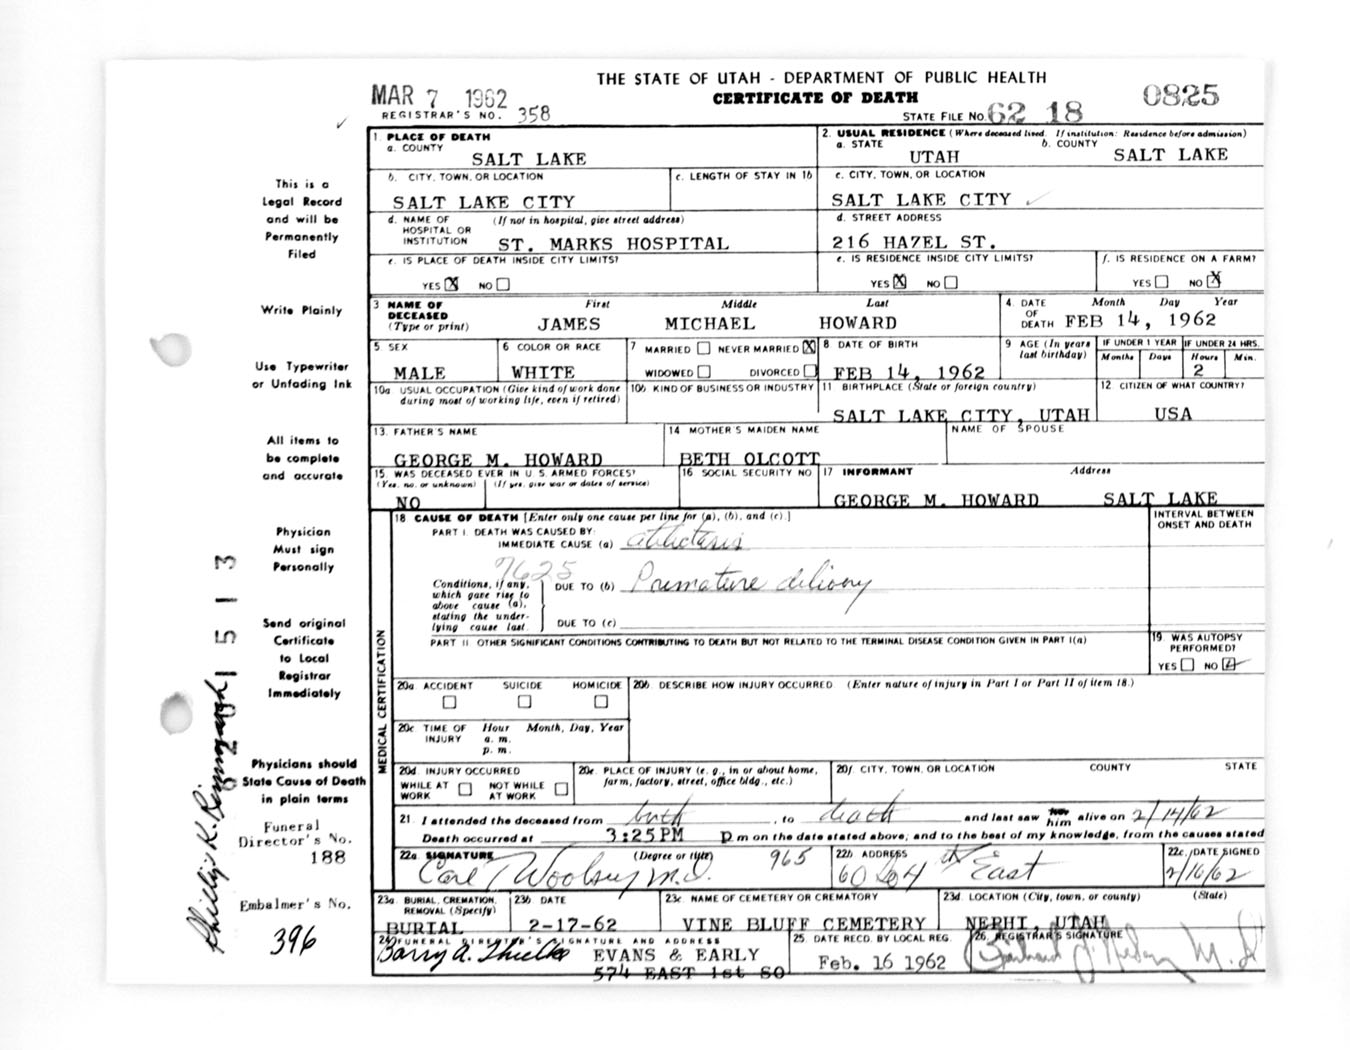 THE STATE OF UTAH - DEPARTMENT OF PUBLIC HEALTH
MAR 7 1962 CERTIFICATE OF DEATH 0825
REGISTRAR'S NO. 358 STATE FILE No. 62 18
1 PLACE OF DEATH
a. COUNTY
SALT LAKE
2. USUAL RESIDENCE (Where deceased lived. If institution: Residence before admission)
a. STATE b. COUNTY
UTAH SALT LAKE
b. CITY, TOWN, OR LOCATION c. LENGTH OF STAY IN 1b
SALT LAKE CITY
c. CITY, TOWN, OR LOCATION
SALT LAKE CITY
d. NAME OF (If not in hospital, give street address)
HOSPITAL OR
INSTITUTION ST. MARKS HOSPITAL
d. STREET ADDRESS
216 HAZEL ST.
e. IS PLACE OF DEATH INSIDE CITY LIMITS?
YES X NO
e. IS RESIDENCE INSIDE CITY LIMITS?
YES X NO
f. IS RESIDENCE ON A FARM?
YES NO X
3 NAME OF First Middle Last
DECEASED
(Type or print) JAMES MICHAEL HOWARD
4. DATE Month Day Year
OF
DEATH FEB 14, 1962
5. SEX
MALE
6 COLOR OR RACE
WHITE
7 MARRIED NEVER MARRIED X
WIDOWED DIVORCED
8 DATE OF BIRTH
FEB 14, 1962
9 AGE (In years
last birthday)
IF UNDER 1 YEAR IF UNDER 24 HRS.
Months Days Hours Min.
2
10a USUAL OCCUPATION (Give kind of work done
during most of working life, even if retired)
10b KIND OF BUSINESS OR INDUSTRY
11 BIRTHPLACE (State or foreign country)
SALT LAKE CITY, UTAH
12 CITIZEN OF WHAT COUNTRY?
USA
13. FATHER'S NAME
GEORGE M. HOWARD
14 MOTHER'S MAIDEN NAME
BETH OLCOTT
NAME OF SPOUSE
15 WAS DECEASED EVER IN U.S. ARMED FORCES?
(Yes, no, or unknown) (If yes, give war or dates of service)
NO
16 SOCIAL SECURITY NO
17 INFORMANT Address
GEORGE M. HOWARD SALT LAKE
MEDICAL CERTIFICATION
18 CAUSE OF DEATH [Enter only one cause per line for (a), (b), and (c).]
INTERVAL BETWEEN
ONSET AND DEATH
PART I. DEATH WAS CAUSED BY:
IMMEDIATE CAUSE (a) atelectasis
7625
Conditions, if any,
which gave rise to
above cause (a),
stating the under-
lying cause last.
DUE TO (b) Premature delivery
DUE TO (c)
PART II OTHER SIGNIFICANT CONDITIONS CONTRIBUTING TO DEATH BUT NOT RELATED TO THE TERMINAL DISEASE CONDITION GIVEN IN PART I(a)
19. WAS AUTOPSY
PERFORMED?
YES NO
20a ACCIDENT SUICIDE HOMICIDE
20b. DESCRIBE HOW INJURY OCCURRED (Enter nature of injury in Part I or Part II of item 18.)
20c TIME OF Hour Month, Day, Year
INJURY a. m.
p. m.
20d INJURY OCCURRED
WHILE AT NOT WHILE
WORK AT WORK
20e. PLACE OF INJURY (e. g., in or about home,
farm, factory, street, office bldg., etc.)
20f. CITY, TOWN, OR LOCATION COUNTY STATE
21. I attended the deceased from birth, to death and last saw him alive on 2/14/62
Death occurred at 3:25PM p m on the date stated above; and to the best of my knowledge, from the causes stated
22a SIGNATURE (Degree or title) 965
Earl Woolsey M.D.
22b ADDRESS
60 So 4th East
22c. DATE SIGNED
2/16/62
23a. BURIAL, CREMATION,
REMOVAL (Specify)
BURIAL
23b DATE
2-17-62
23c NAME OF CEMETERY OR CREMATORY
VINE BLUFF CEMETERY
23d. LOCATION (City, town, or county) (State)
NEPHI, UTAH
24 FUNERAL DIRECTOR'S SIGNATURE AND ADDRESS
Barry A. EVANS & EARLY
574 EAST 1st SO
25. DATE RECD. BY LOCAL REG.
Feb. 16 1962
26. REGISTRAR'S SIGNATURE
This is a
Legal Record
and will be
Permanently
Filed
Write Plainly
Use Typewriter
or Unfading Ink
All items to
be complete
and accurate
Physician
Must sign
Personally
Send original
Certificate
to Local
Registrar
Immediately
Physicians should
State Cause of Death
in plain terms
Funeral
Director's No.
188
Embalmer's No.
396
Phillip R.
1513